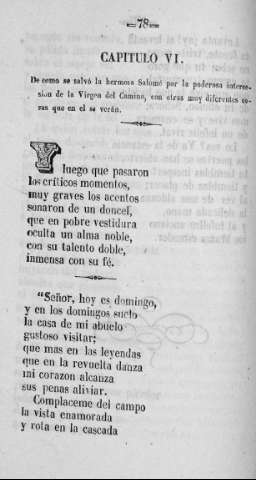 =78=
CAPITULO VI.
De como se salvó la hermosa Salomé por la poderosa interce-
sion de la Virgen del Camino, con otras muy diferentes co-
sas que en el se verán.
Y luego que pasaron
los críticos momentos,
muy graves los acentos
sonaron de un doncel,
que en pobre vestidura
oculta un alma noble,
con su talento doble,
inmensa con su fé.
"Señor, hoy es domingo,
y en los domingos suelo
la casa de mi abuelo
gustoso visitar;
que mas en las leyendas
que en la revuelta danza
mi corazon alcanza
sus penas aliviar.
Complaceme del campo
la vista enamorada
y rota en la cascada